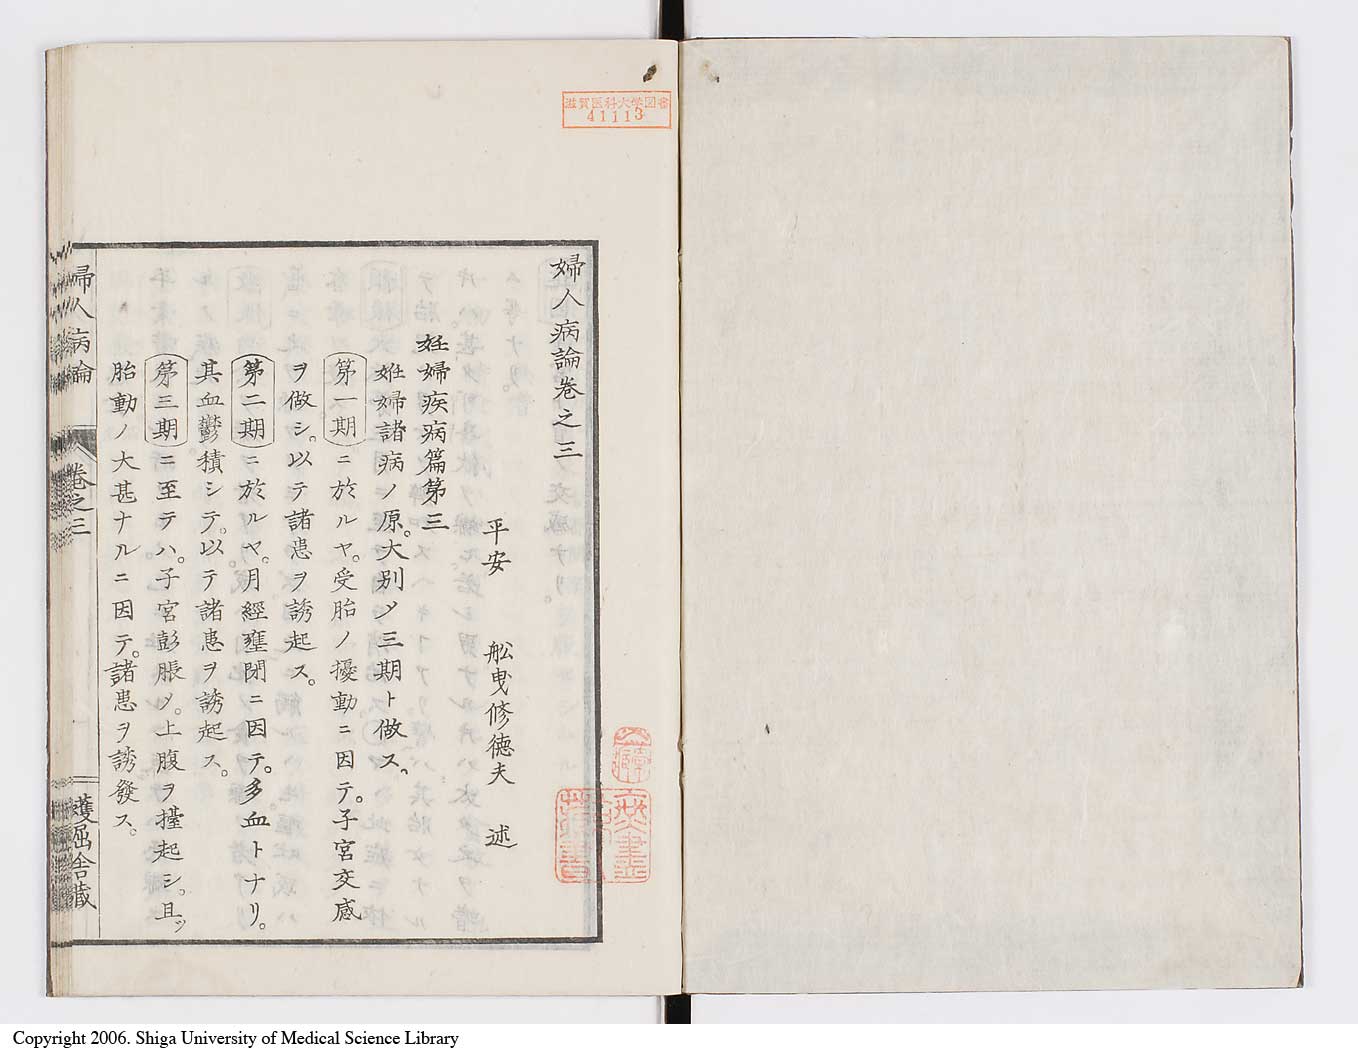 滋賀医科大学図書
41113
婦人病論巻之三
平安 舩曳修徳夫 述
妊婦疾病篇第三
妊婦諸病ノ原。大別〆三期ト做ス。
第一期ニ於ルヤ。受胎ノ擾動ニ因テ。子宮交感
ヲ做シ。以テ諸患ヲ誘起ス。
第二期ニ於ルヤ。月經壅閉ニ因テ。多血トナリ。
其血鬱積シテ。以テ諸患ヲ誘起ス。
第三期ニ至テハ。子宮彭脹〆。上腹ヲ擡起シ。且ッ
胎動ノ大甚ナルニ因テ。諸患ヲ誘發ス。
婦人病論 巻之三 護屈舎蔵
Copyright 2006. Shiga University of Medical Science Library